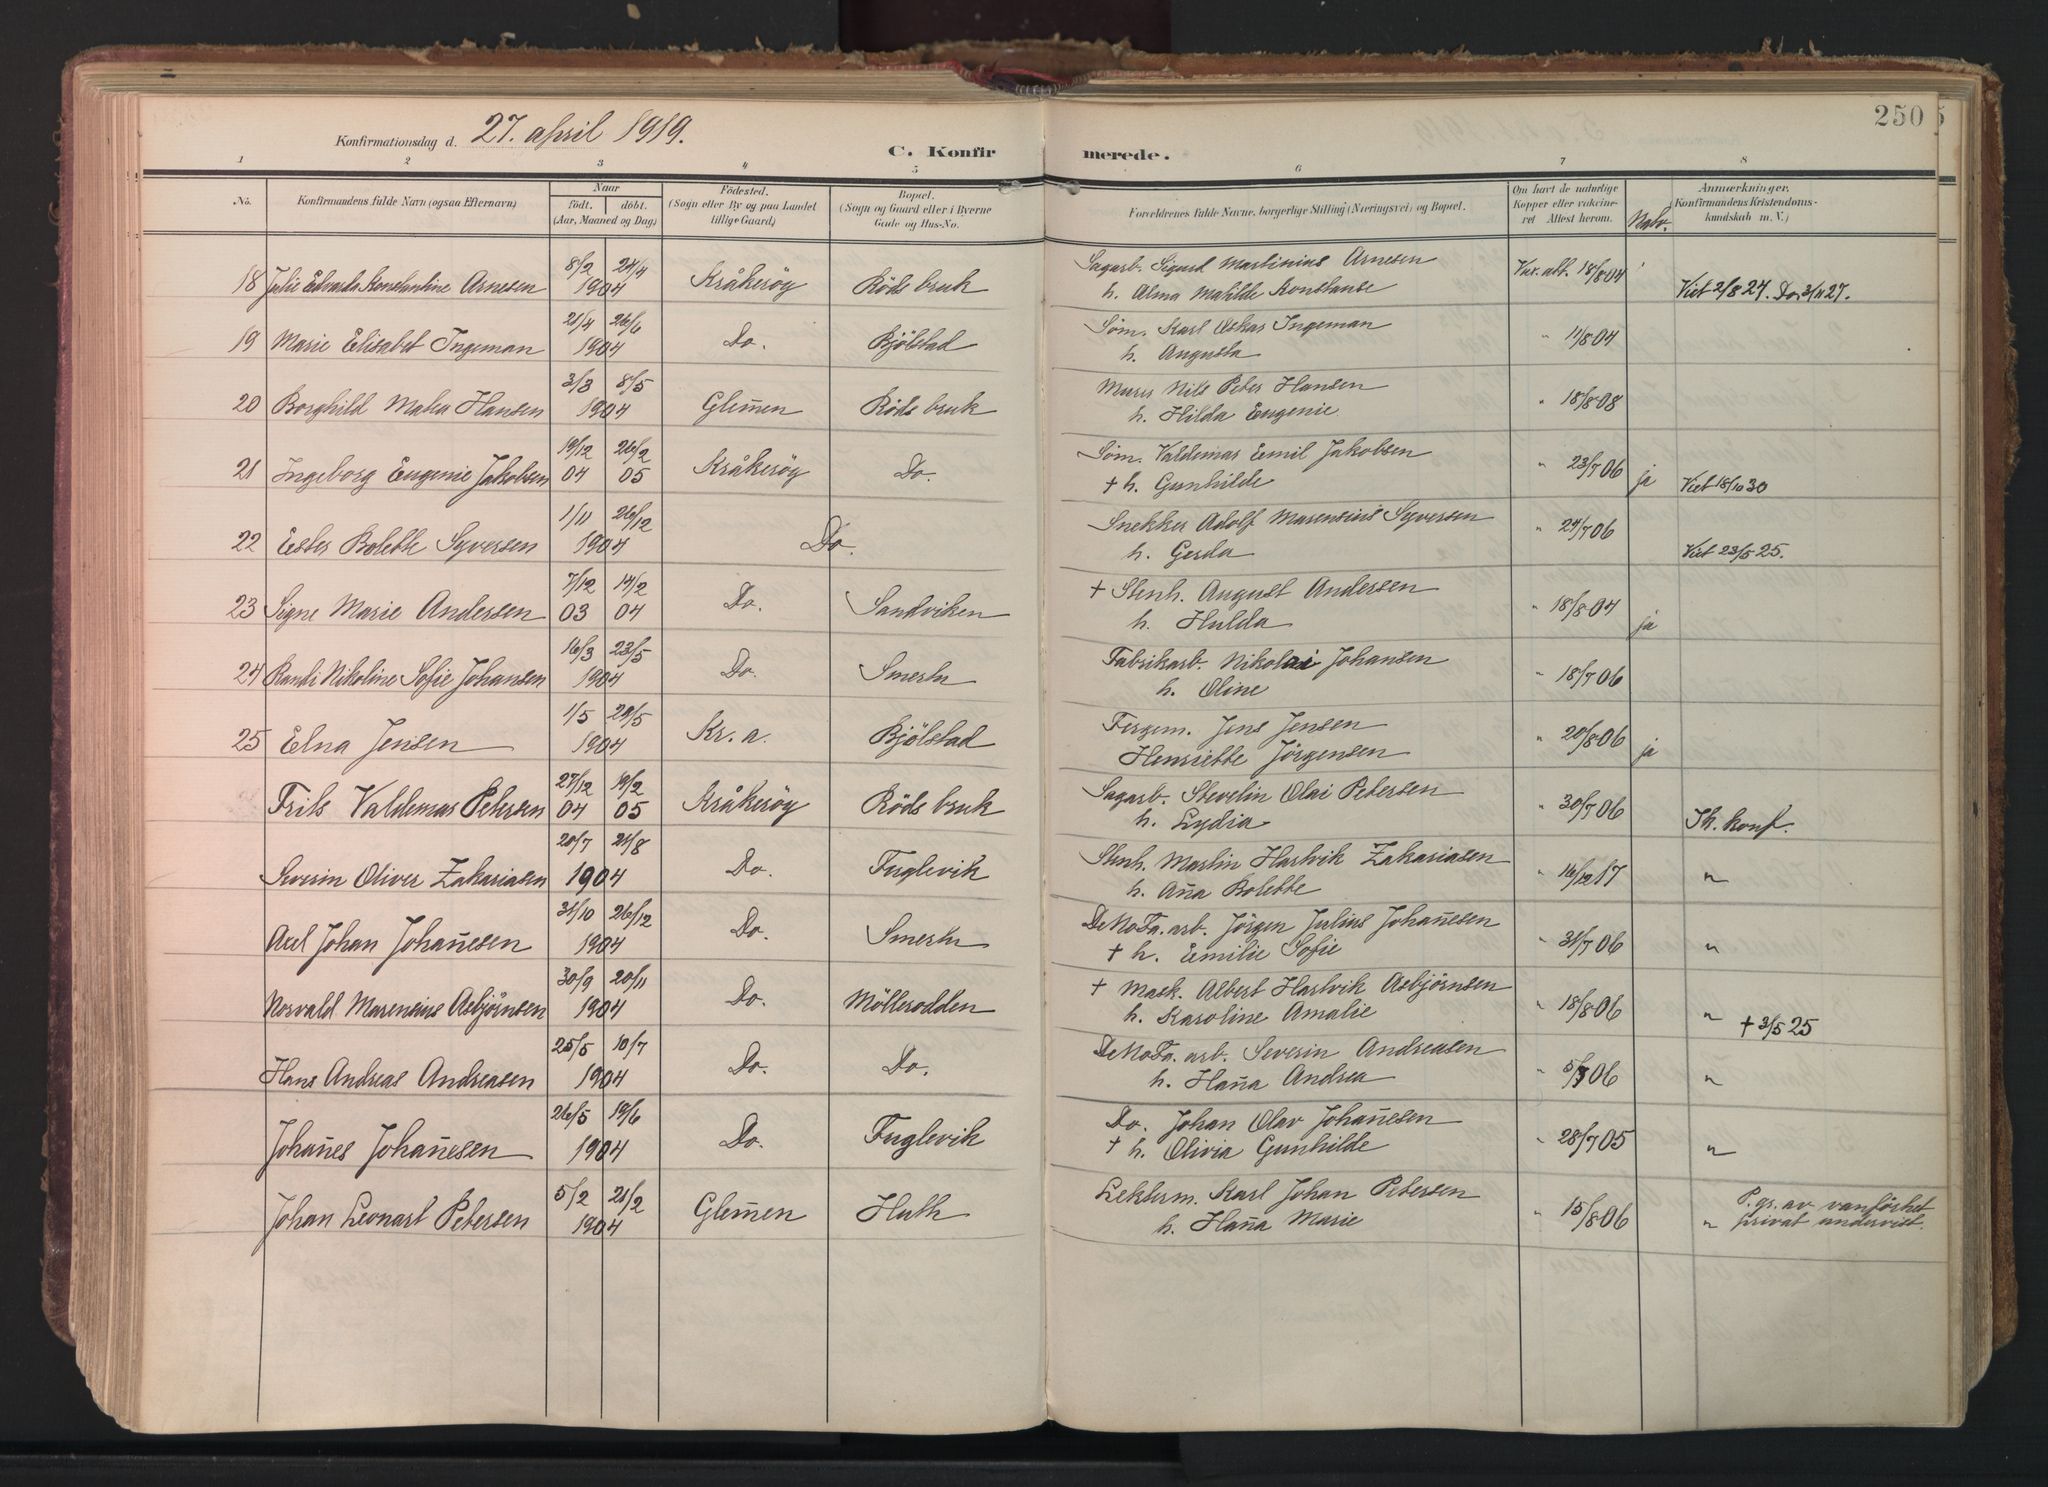 250
Konfirmationsdag d. 27. april 1919.
C. Konfirmerede.
1 2 3 4 5 6 7 8
No. Konfirmandens fulde Navn (ogsaa Efternavn) Naar født. døbt. (Aar, Maaned og Dag) Fødested. (Sogn eller By og paa Landet tillige Gaard) Bopæl. (Sogn og Gaard eller i Byerne Gade og Hus-No. Forældrenes fulde Navne, borgerlige Stilling (Næringsvei) og Bopæl. Om havt de naturlige Kopper eller vakcineret Attest herom. Anmærkninger. Konfirmandens Kristendomskundskab m. V.)
18 Julie Edvarda Konstantine Arnesen 8/2 24/4 1904 Kråkerøy Röds bruk Sagarb. Sigurd Martinius Arnesen Vax. att. 18/8 04 Viet 2/8 27. Do. 3/11 27.
h. Alma Matilde Konstanse
19 Marie Elisabet Ingeman 21/4 26/6 1904 Do. Bjölstad Søm. Karl Oskar Ingeman " 11/8 04
h. Augusta
20 Borghild Malea Hansen 3/3 8/5 1904 Glem̄en Röds bruk Murer Nils Peter Hansen " 18/8 08
h. Hilda Eugenie
21 Ingeborg Eugenie Jakobsen 19/12 04 26/2 05 Kråkerøy Do. Søm. Valdemar Emil Jakobsen " 23/7 06 ja Viet 18/10 30
+ h. Gunhilde
22 Ester Bolette Syversen 1/11 26/12 1904 Do. Snekker Adolf Marensius Syversen " 24/7 06 Viet 23/5 25.
h. Gerda
23 Signe Marie Andersen 7/12 03 14/2 04 Do. Sandviken + Stenh. August Andersen " 18/8 04 ja
h. Hulda
24 Randi Nikoline Sofie Johansen 16/3 23/5 1904 Do. Smertu Fabrikarb. Nikolai Johansen " 18/7 06
h. Oline
25 Elna Jensen 1/5 29/5 1904 Kr. a. Bjölstad Fergem. Jens Jensen " 20/8 06 ja
Henriette Jörgensen
Frits Valdemar Petersen 27/12 04 19/2 05 Kråkerøy Röds bruk Sagarb. Stevelin Olai Petersen " 30/7 06 Ik. konf.
h. Lydia
Severin Oliver Zakariasen 20/7 21/8 1904 Do. Fuglevik Stenh. Martin Hartvik Zakariasen " 16/12 17 "
h. An̄a Bolette
Axel Johan Johan̄esen 31/10 26/12 1904 Do. Smertu DeNoFa. arb. Jörgen Julius Johan̄esen " 31/7 06 "
+ h. Emilie Sofie
Norvald Marensius Asbjørnsen 30/9 20/11 1904 Do. Möllerodden + Mask. Albert Hartvik Asbjørnsen " 18/8 06 " + 3/5 25
h. Karoline Amalie
Hans Andreas Andreasen 25/5 10/7 1904 Do. Do. DeNoFa. arb. Severin Andreasen " 06 "
h. Han̄a Andrea
Johan̄es Johan̄esen 26/5 19/6 1904 Do. Fuglevik Do. Johan Olav Johan̄esen " 28/7 05 "
+ h. Olivia Gunhilde
Johan Leonart Petersen 5/2 21/2 1904 Glem̄en Huth Lekterm. Karl Johan Petersen " 15/8 06 " P. gr. av vanførhet
h. Han̄a Marie privat undervist.